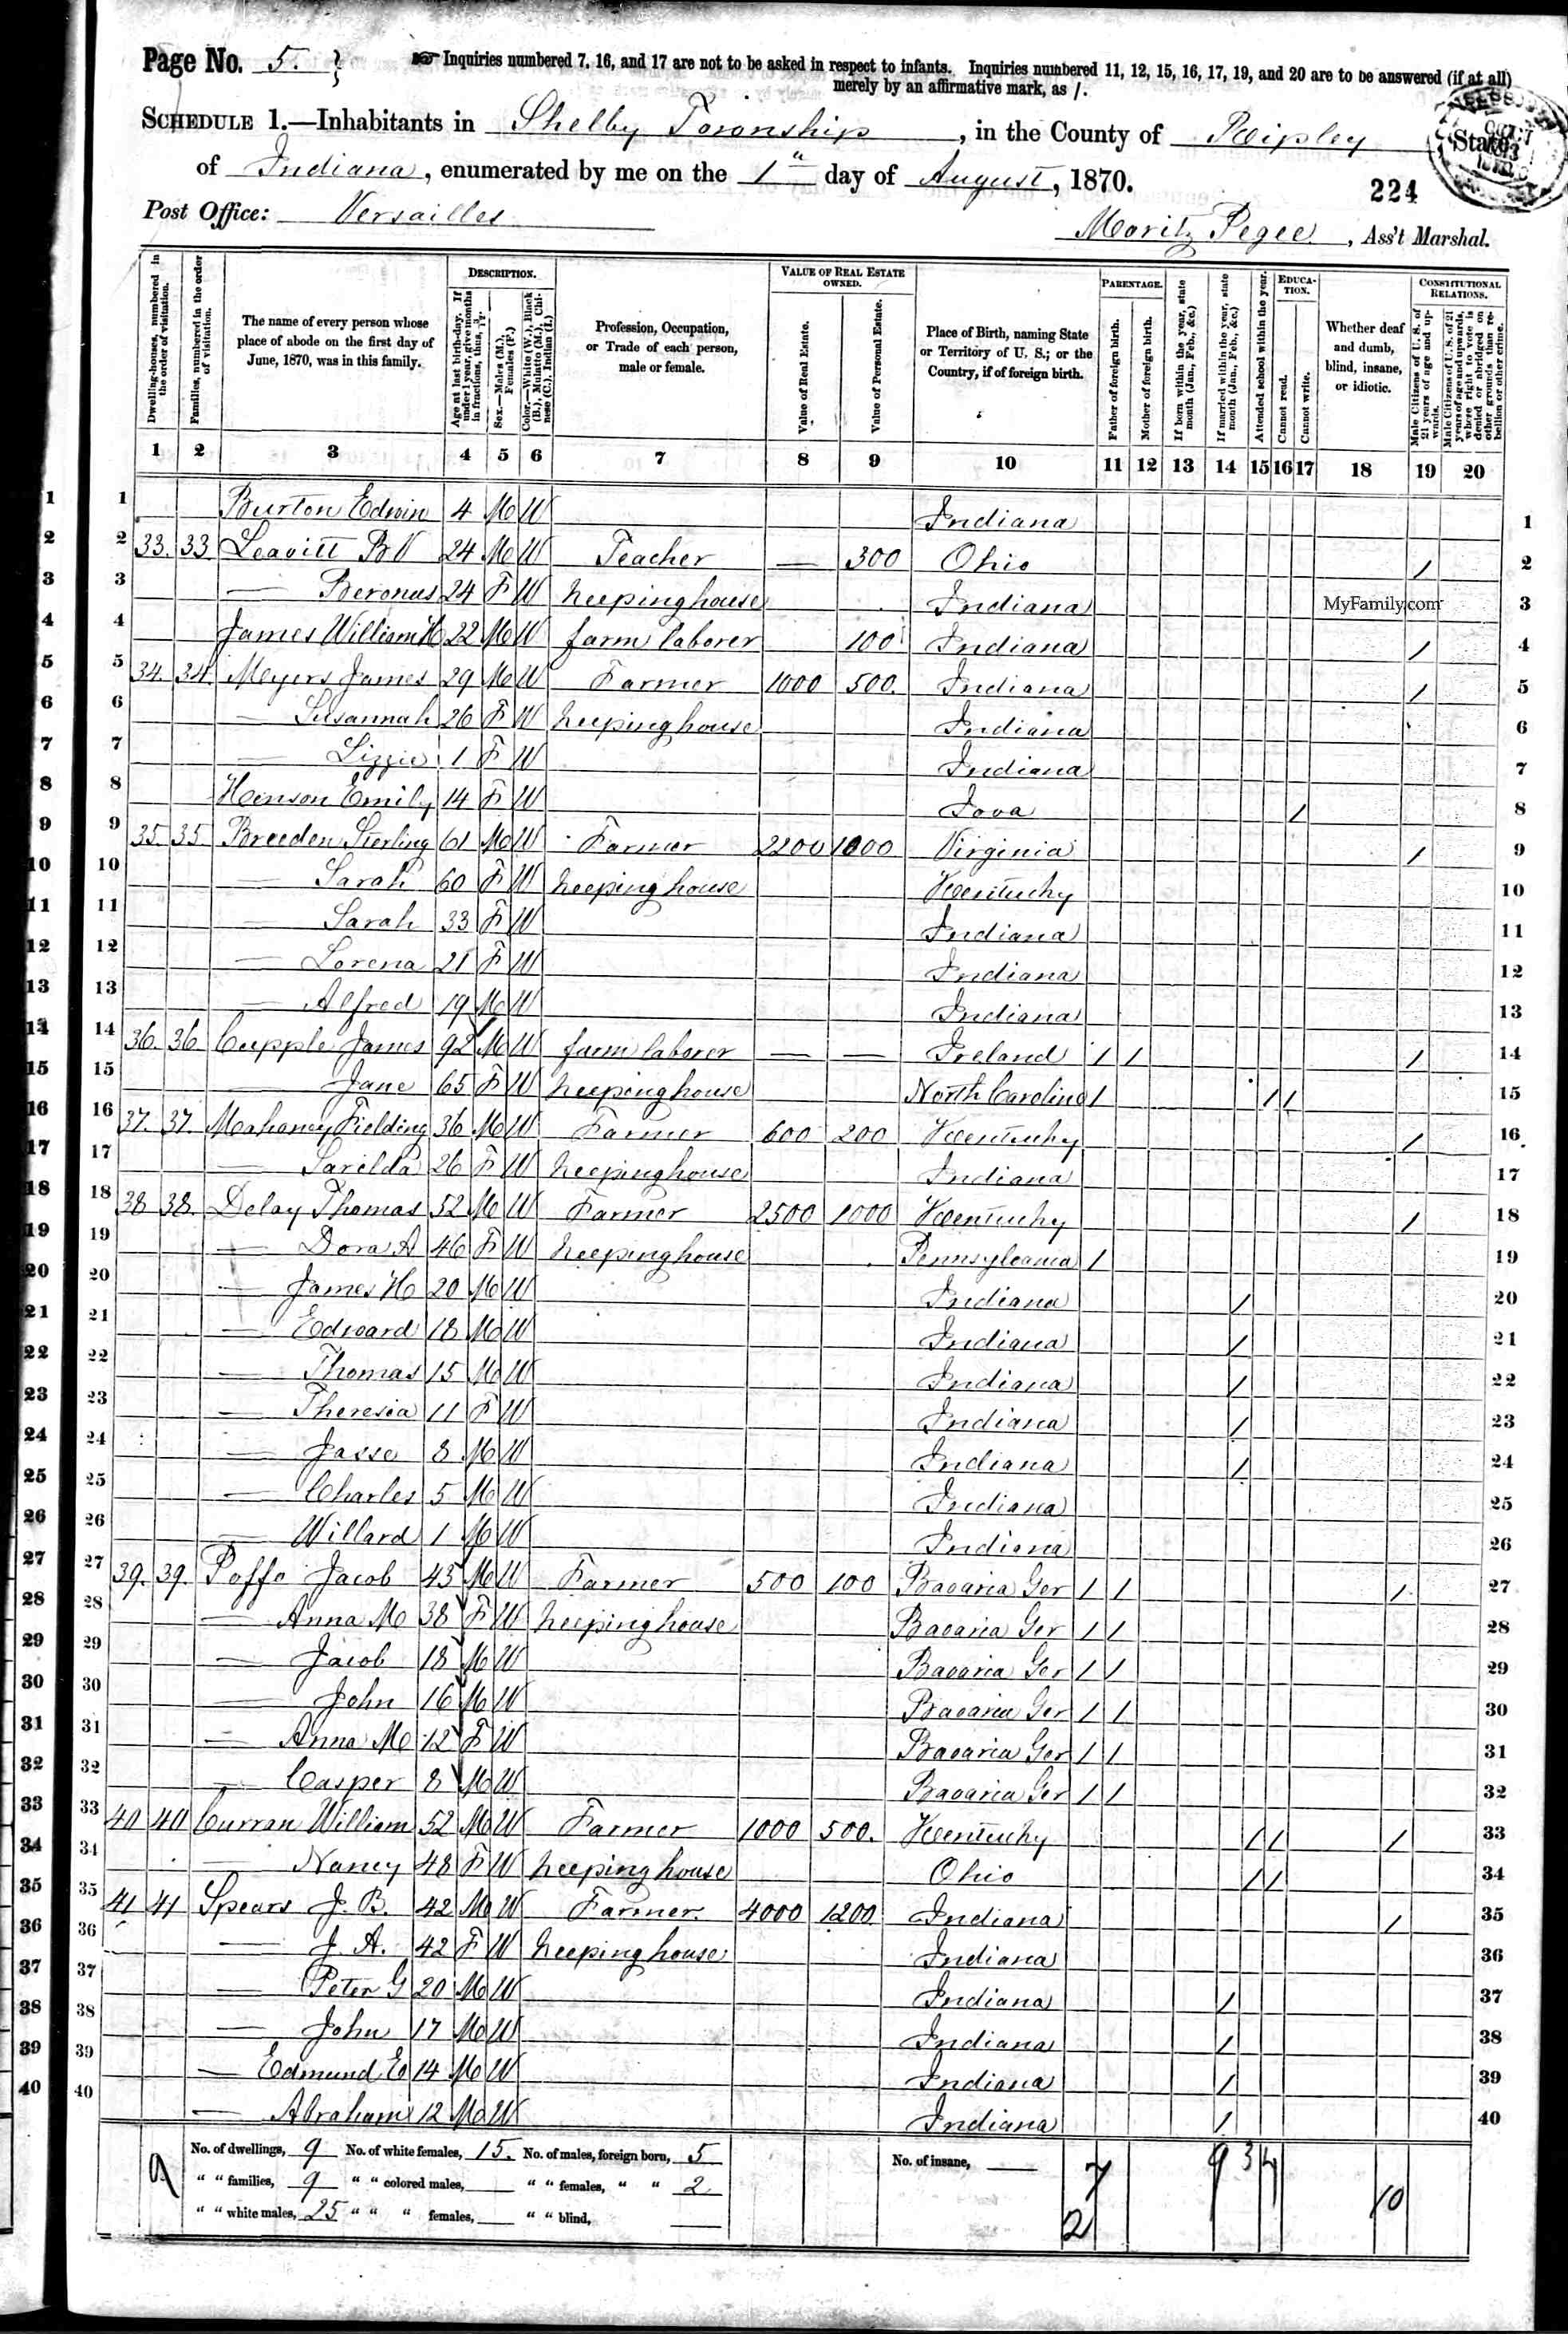 Page No. 5. Inquiries numbered 7, 16, and 17 are not to be asked in respect to infants. Inquiries numbered 11, 12, 15, 16, 17, 19, and 20 are to be answered (if at all)
merely by an affirmative mark, as /.
SCHEDULE 1.—Inhabitants in Shelby Township, in the County of Ripley, State
of Indiana, enumerated by me on the 1" day of August, 1870.
224
Post Office: Versailles
Moritz, Ass't Marshal.
Dwelling-houses, numbered in the order of visitation.
Families, numbered in the order of visitation.
The name of every person whose place of abode on the first day of June, 1870, was in this family.
DESCRIPTION.
Age at last birth-day. If under 1 year, give months in fractions, thus, 3/12
Sex.—Males (M.), Females (F.)
Color.—White (W.), Black (B.), Mulatto (M.), Chinese (C.), Indian (I.)
Profession, Occupation, or Trade of each person, male or female.
VALUE OF REAL ESTATE OWNED.
Value of Real Estate.
Value of Personal Estate.
Place of Birth, naming State or Territory of U. S.; or the Country, if of foreign birth.
PARENTAGE.
Father of foreign birth.
Mother of foreign birth.
If born within the year, state month (Jan., Feb., &c.)
If married within the year, state month (Jan., Feb., &c.)
Attended school within the year.
EDUCATION.
Cannot read.
Cannot write.
Whether deaf and dumb, blind, insane, or idiotic.
CONSTITUTIONAL RELATIONS.
Male Citizens of U. S. of 21 years of age and upwards.
Male Citizens of U. S. of 21 years of age and upwards, where right to vote is denied or abridged on other grounds than rebellion or other crime.
1 2 3 4 5 6 7 8 9 10 11 12 13 14 15 16 17 18 19 20
1 1 Burton Edwin 4 M W Indiana 1
2 2 33. 33 Leavitt 24 M W Teacher — 300 Ohio / 2
3 3 — 24 F W keeping house Indiana MyFamily.com 3
4 4 James William H 22 M W farm laborer 100 Indiana / 4
5 5 34. 34. Meyers James 29 M W Farmer 1000 500. Indiana / 5
6 6 — Susannah 26 F W keeping house Indiana 6
7 7 — Lizzie 1 F W Indiana 7
8 8 Henson Emily 14 F W Iova / 8
9 9 35. 35. Breeden Sterling 61 M W Farmer 2200 1000 Virginia / 9
10 10 — Sarah 60 F W keeping house Kentucky 10
11 11 — Sarah 33 F W Indiana 11
12 12 — Lorena 21 F W Indiana 12
13 13 — Alfred 19 M W Indiana 13
14 14 36. 36. Cupple James 92 M W farm laborer — — Ireland / / / 14
15 15 — Jane 65 F W keeping house North Carolina / / / 15
16 16 37. 37. Mahaney Fielding 36 M W Farmer 600 200 Kentucky / 16
17 17 — Sarilda 26 F W keeping house Indiana 17
18 18 38 38. Delay Thomas 52 M W Farmer 2500 1000 Kentucky / 18
19 19 — Dora A 46 F W keeping house Pennsylvania / 19
20 20 — James H 20 M W Indiana / 20
21 21 — Edward 18 M W Indiana / 21
22 22 — Thomas 15 M W Indiana / 22
23 23 — Theresia 11 F W Indiana / 23
24 24 — Jasse 8 M W Indiana / 24
25 25 — Charles 5 M W Indiana 25
26 26 — Willard 1 M W Indiana 26
27 27 39. 39. Poffo Jacob 43 M W Farmer 500 100 Bavaria Ger / / / 27
28 28 — Anna M 38 F W keeping house Bavaria Ger / / 28
29 29 — Jacob 18 M W Bavaria Ger / / 29
30 30 — John 16 M W Bavaria Ger / / 30
31 31 — Anna M 12 F W Bavaria Ger / / 31
32 32 — Casper 8 M W Bavaria Ger / / 32
33 33 40 40 Curran William 52 M W Farmer 1000 500. Kentucky / / / 33
34 34 — Nancy 48 F W keeping house Ohio / / 34
35 35 41 41 Spears J. B. 42 M W Farmer. 4000 1200 Indiana / 35
36 36 — J. A. 42 F W keeping house Indiana 36
37 37 — Peter G 20 M W Indiana / 37
38 38 — John 17 M W Indiana / 38
39 39 — Edmund E 14 M W Indiana / 39
40 40 — Abraham 12 M W Indiana / 40
No. of dwellings, 9 No. of white females, 15. No. of males, foreign born, 5 No. of insane, — 7 9 3 4
9 " " families, 9 " " colored males, " " females, " " 2 10
" " white males, 25 " " " females, " " blind, 2